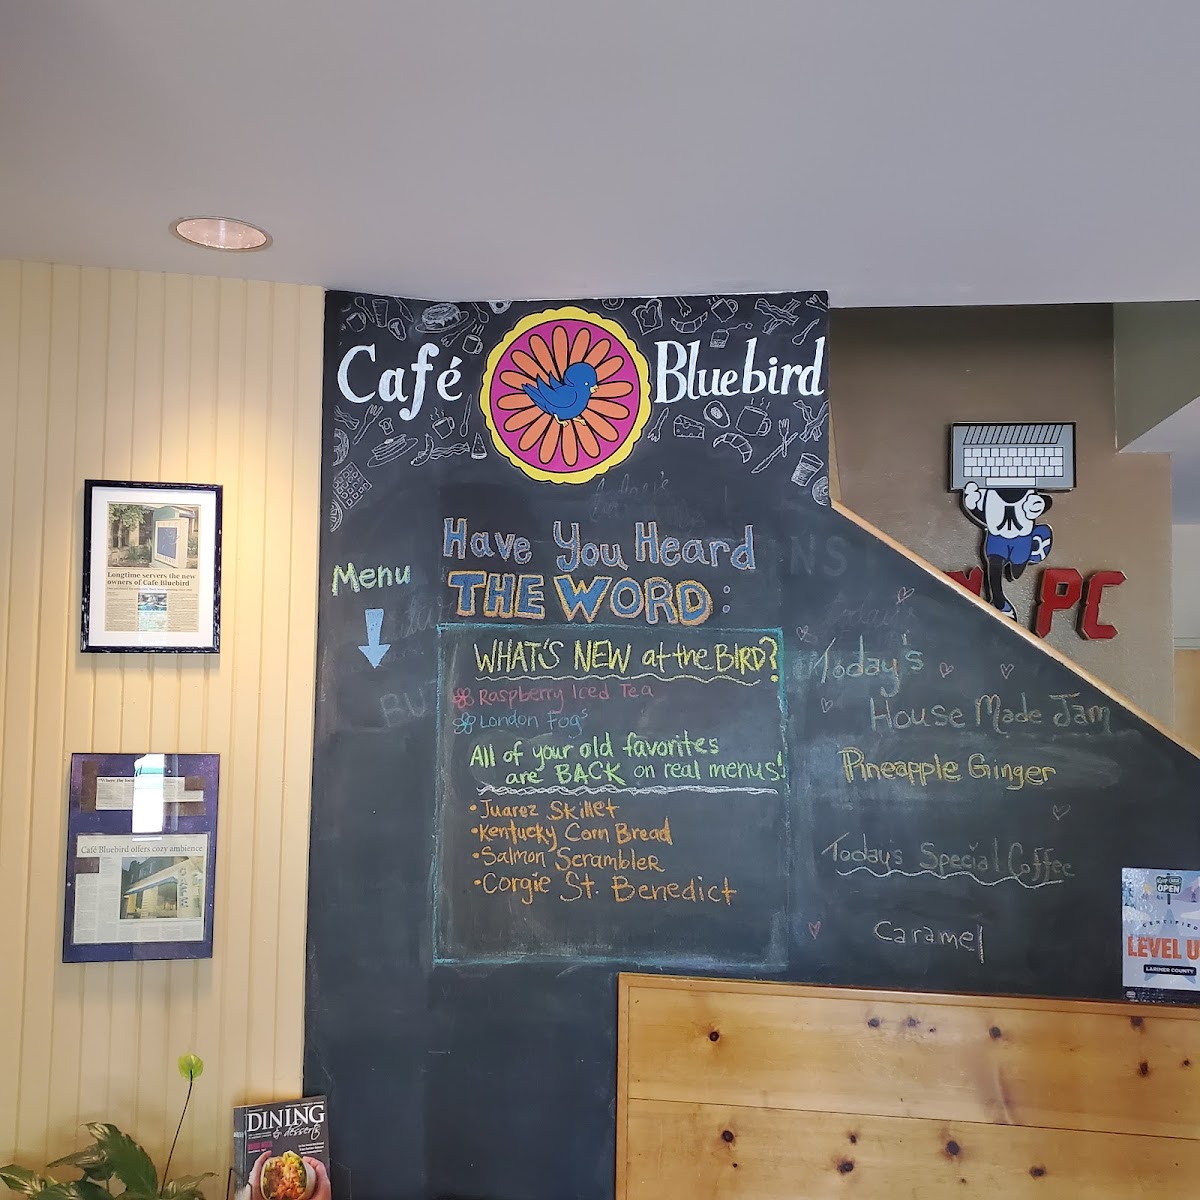 Café Bluebird
Have You Heard
THE WORD:
Menu
WHAT'S NEW at the BIRD?
Raspberry Iced Tea
London Fogs
All of your old favorites
are BACK on real menus!
• Juarez Skillet
• Kentucky Corn Bread
• Salmon Scrambler
• Corgie St. Benedict
Today's
House Made Jam
Pineapple Ginger
Today's Special Coffee
Caramel
PC
OPEN
CERTIFIED
LEVEL U
LARIMER COUNTY
Longtime servers the new
owners of Cafe Bluebird
Café Bluebird offers cozy ambience
DINING
& desserts